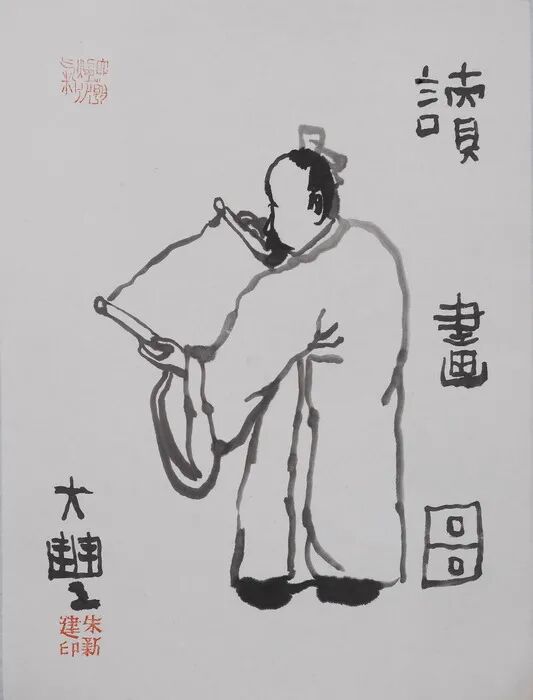 讀畫圖
大豐
朱新
建印